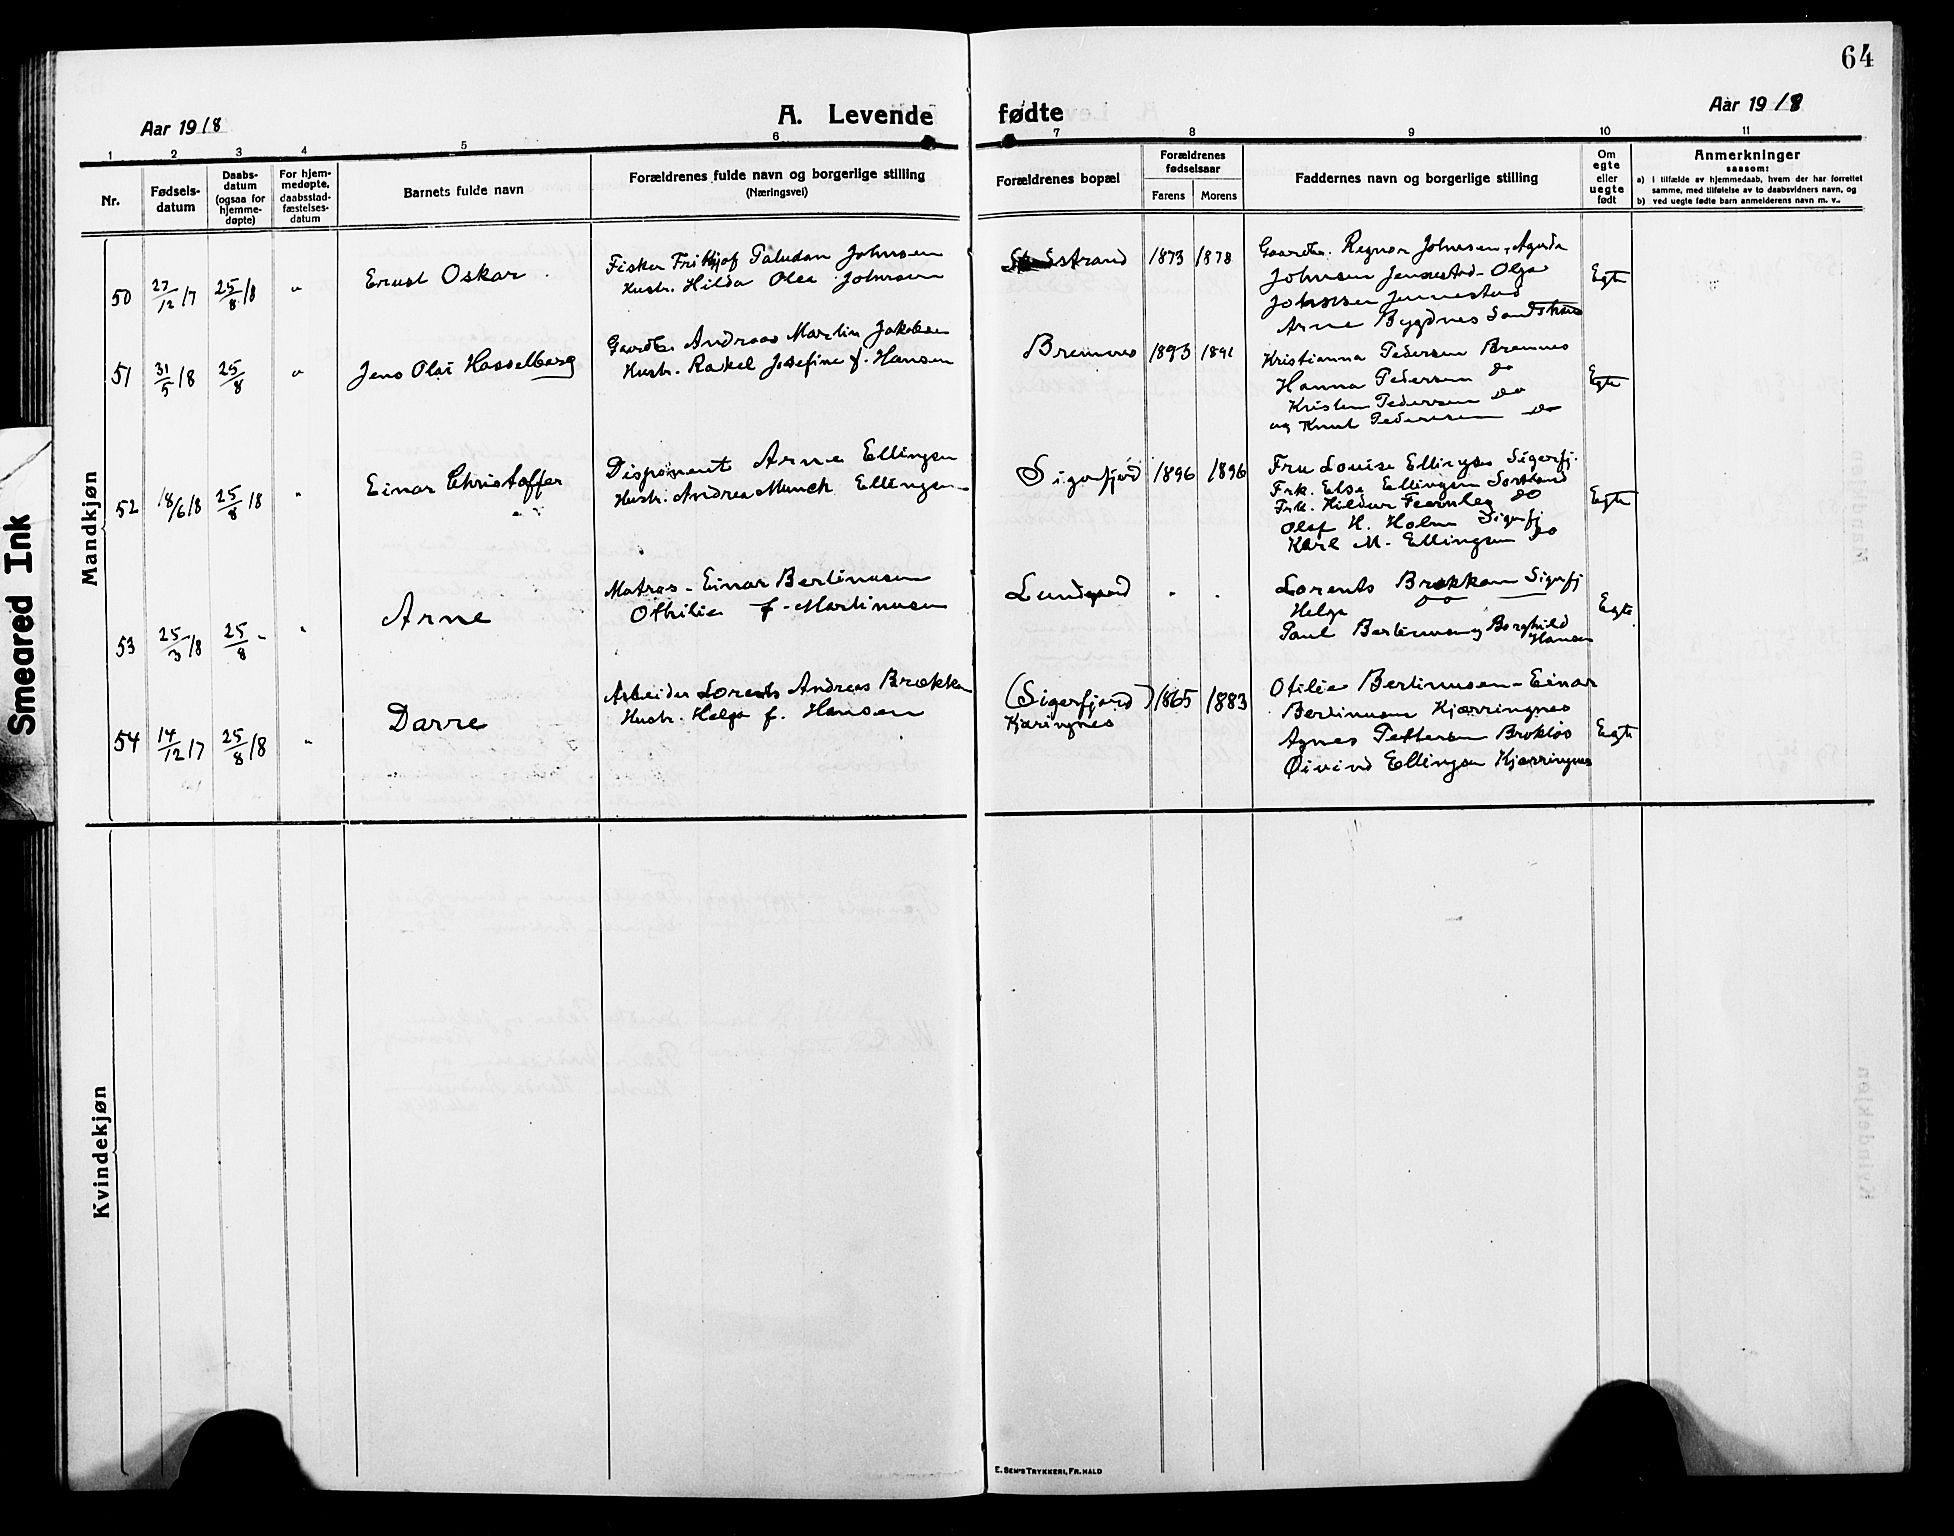 64
Aar 1918
A. Levende fødte
Aar 1918
1 2 3 4 5 6 7 8 9 10 11
Nr.
Fødsels-
datum
Daabs-
datum
(ogsaa for
hjemme-
døpte)
For hjem-
medøpte,
daabsstad-
fæstelses-
datum
Barnets fulde navn
Forældrenes fulde navn og borgerlige stilling
(Næringsvei)
Forældrenes bopæl
Forældrenes
fødselsaar
Farens Morens
Faddernes navn og borgerlige stilling
Om
egte
eller
uegte
født
Anmerkninger
saasom:
a) i tilfælde av hjemmedaab, hvem der har forrettet
samme, med tilføielse av to daabsvidners navn, og
b) ved uegte fødte barn anmelderens navn m. v..
Mandkjøn
50 27/12 17 25/8 18 " Ernst Oskar
Fisker Fritjof Paludan Johnsen
Hustr. Hilda Olea Johnsen
strand 1873 1878
Gaardbr. Regnor Johnsen, Agnda
Johnsen Jennestad - Olga
Johnsen Jennestad
Arne Bygdnes
Egte
51 31/5 18 25/8 " Jens Olai Hasselberg
Gaardbr. Andreas Martin Jakobsen
Hustr. Rakel Josefine f. Hansen
Bremnes 1893 1891
Kristianna Pedersen Bremnes
Hanna Pedersen do
Kristen Pedersen do
og Knut Pedersen do
Egte
52 18/6 18 25/8 18 " Einar Christoffer
Disponent Arne Ellingsen
Hustr. Andrea Munch Ellingsen
Sigerfjord 1896 1896
Fru Louise Ellingsen Sigerfj.
Frk. Else Ellingsen Sortland
Frk. Hildur Fearnley do
Olaf H. Holm Sigerfj
Karl M. Ellingsen do
Egte
53 25/3 18 25/8 - " Arne
Matros - Einar Bertinusen
Othilie f. Martinusen
Lundgaard - -
Lorents Brekken Sigerfj
Helga do
Paul Bertinusen og Borghild
Hansen
Egte.
54 14/12 17 25/8 18 " Darre
Arbeider Lorents Andreas Brekken
Hustr. Helga f. Hansen
(Sigerfjord)
Kjæringnes
1865 1883
Otilie Bertinusen - Einar
Bertinusen Kjærringnes
Agnes Pettersen Brokløs
Øivind Ellingsen Kjærringnes
Egte
Kvindekjøn
E. SEM'S TRYKKERI, FR.HALD
Smeared Ink